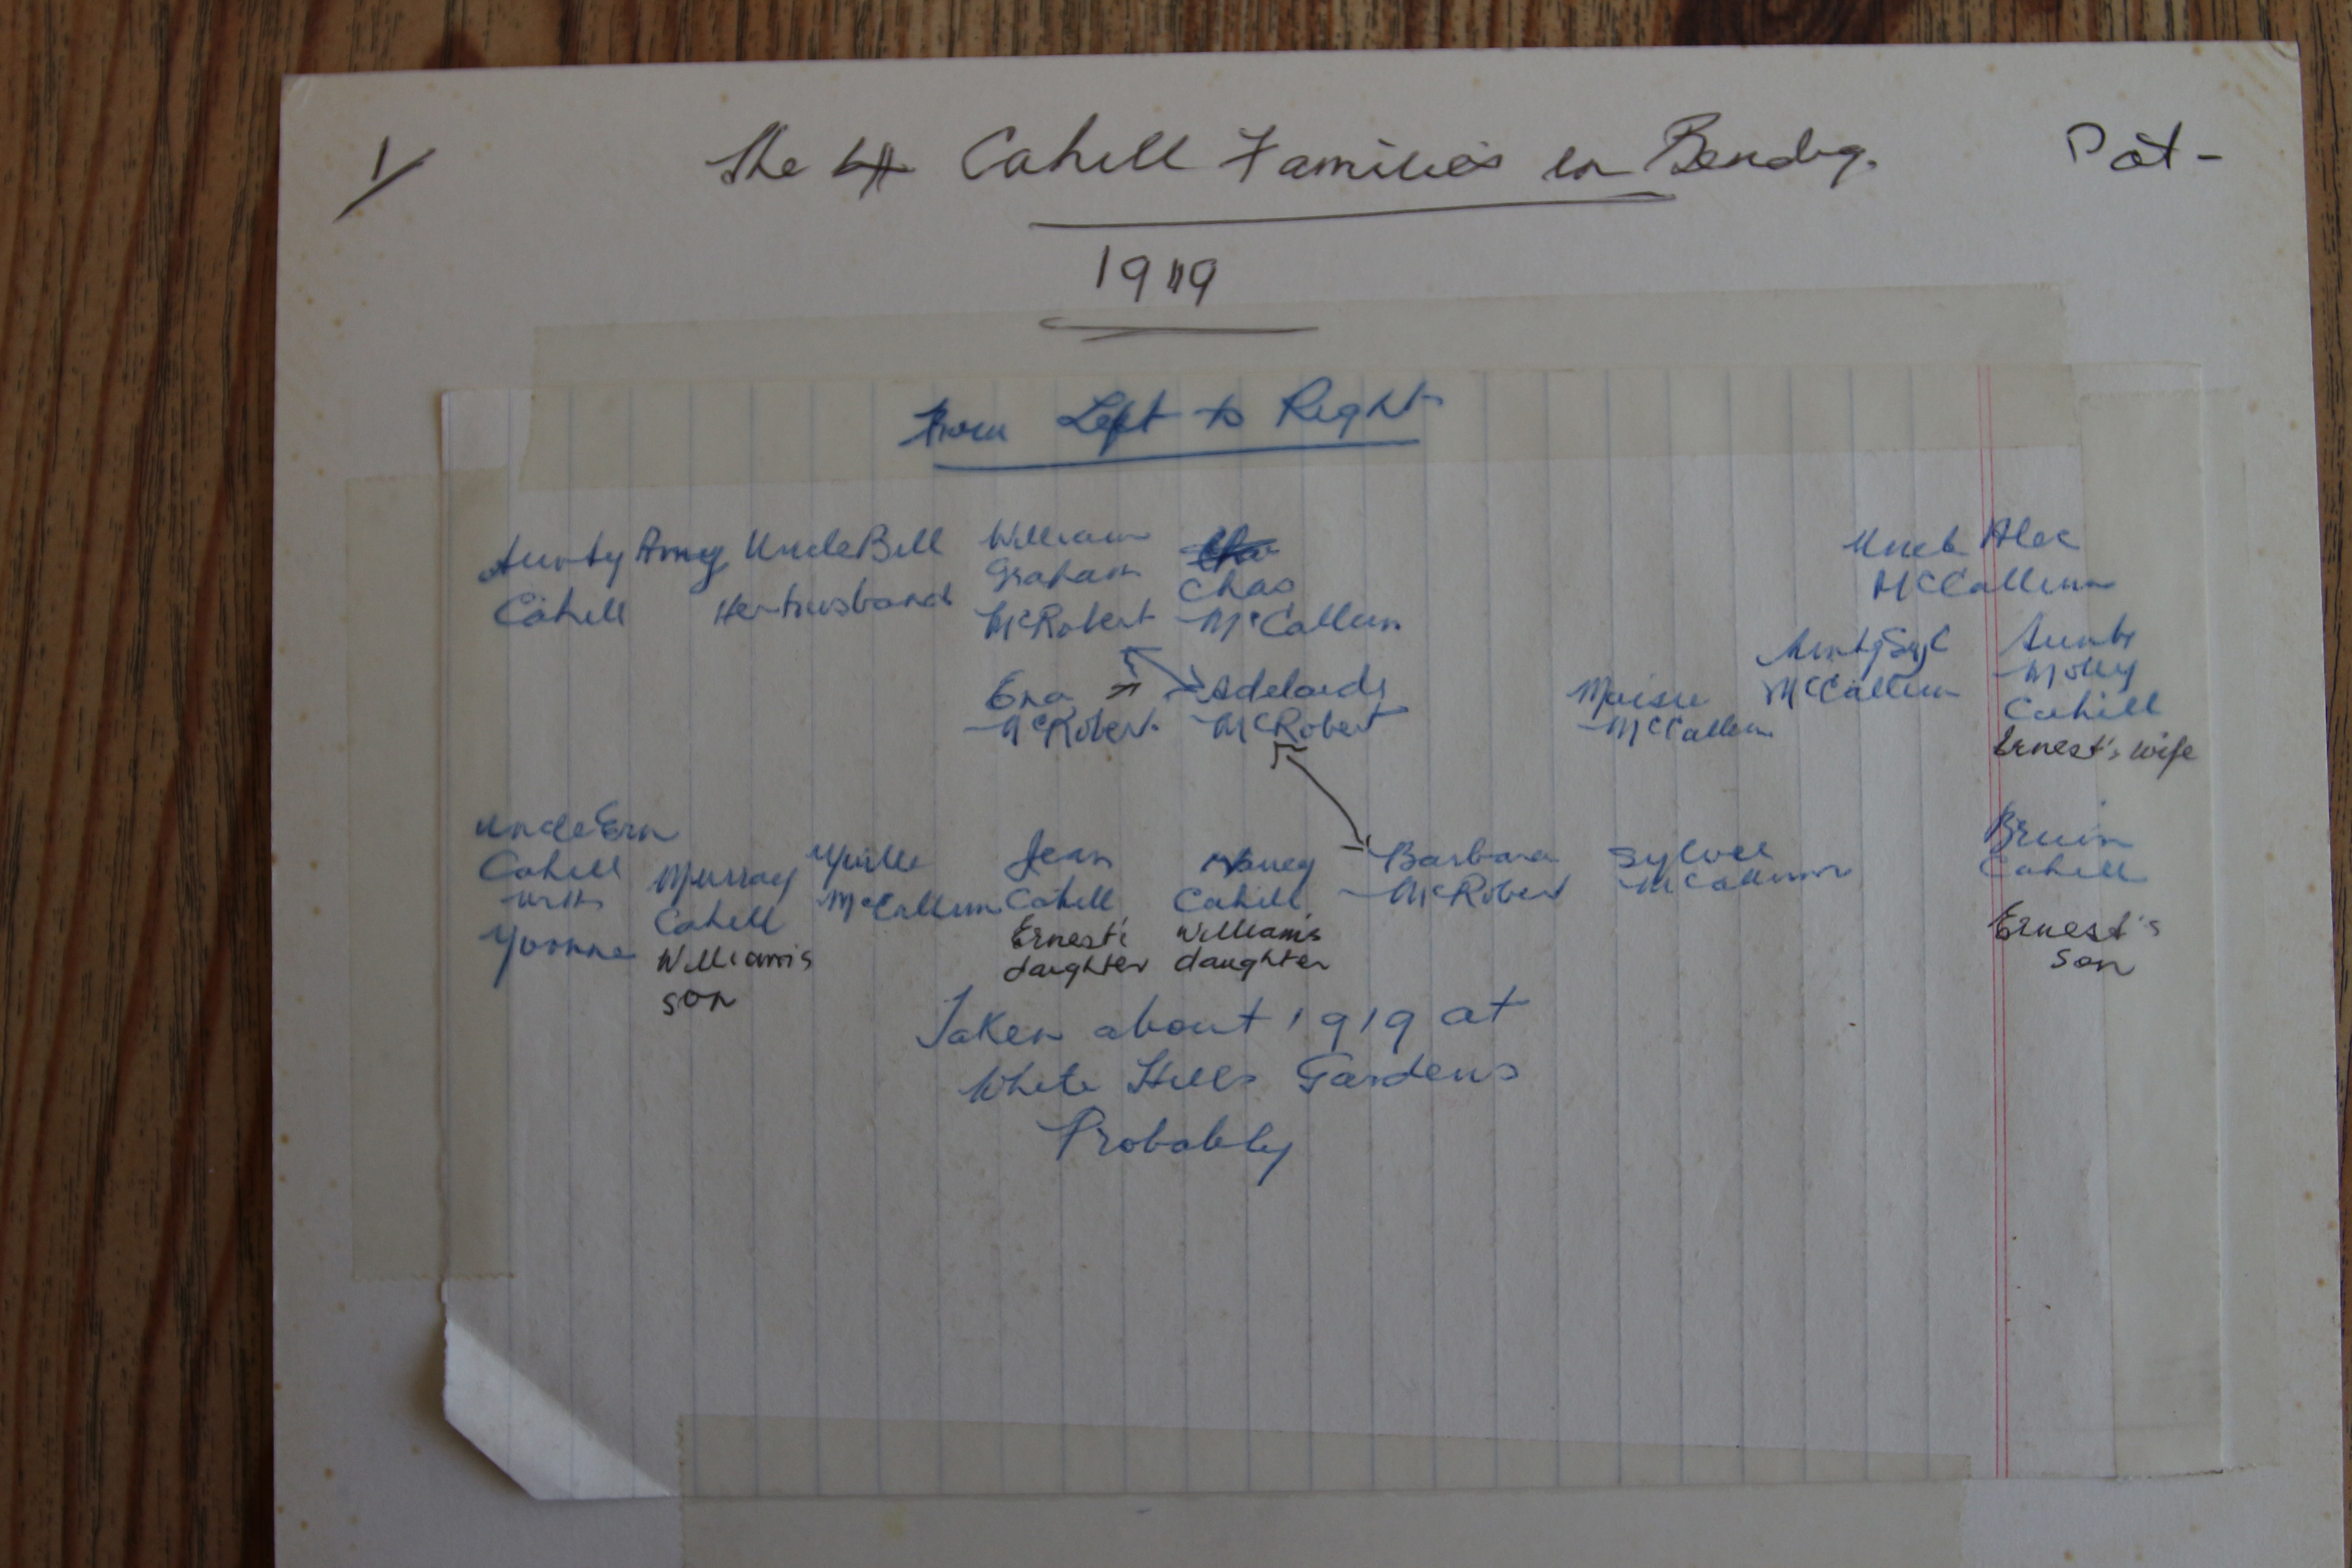 1/
The 4 Cahill Families in Bendig.
Pat-
1919
From Left to Right
Aunty Amy Cahill
Uncle Bill Her husband
William Graham McRobert
Chas McCallum
Uncle Alec McCallum
Ena McRobert
Adelaide McRobert
Maisie McCallum
Aunty Syl McCallum
Aunty Molly Cahill
Ernest's wife
Uncle Ern Cahill with Yvonne
Murray Cahill
William's son
McCallum
Jean Cahill
Ernest's daughter
Nancy Cahill
William's daughter
Barbara McRobert
McCallum
Bruin Cahill
Ernest's son
Taken about 1919 at
White Hills Gardens
Probably